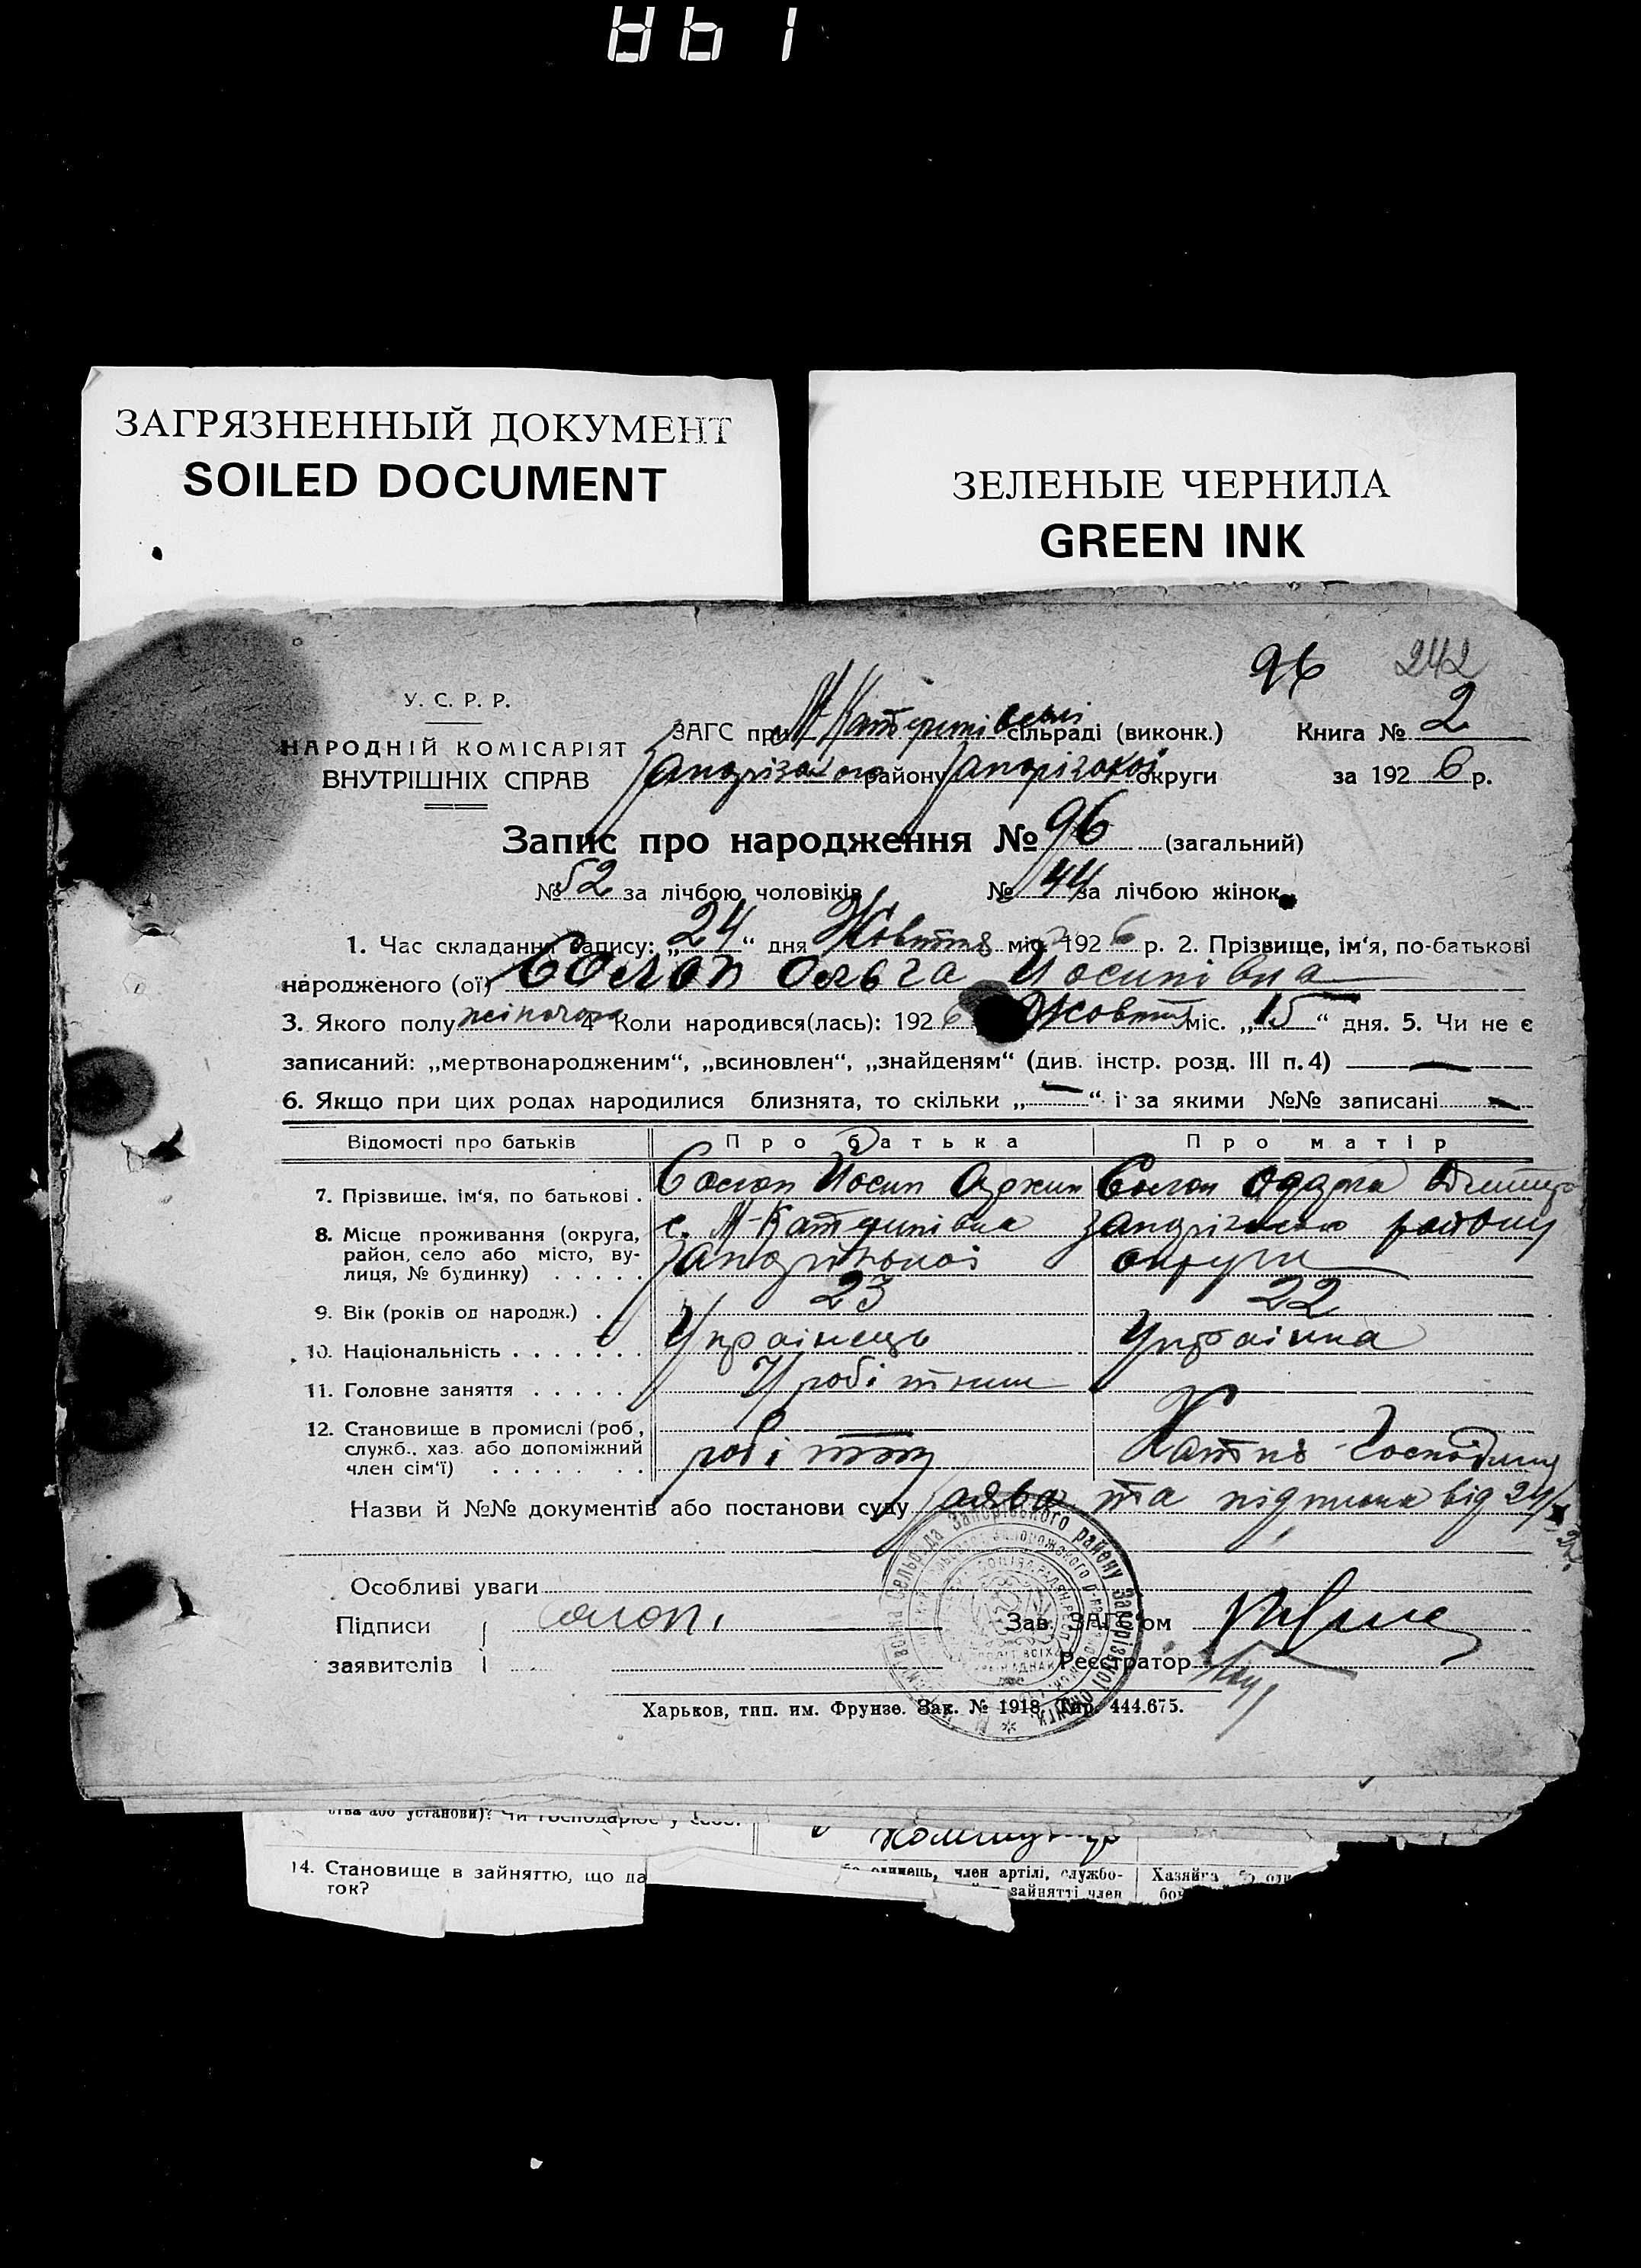 ЗАГРЯЗНЕННЫЙ ДОКУМЕНТ
SOILED DOCUMENT
ЗЕЛЕНЫЕ ЧЕРНИЛА
GREEN INK
96 242
У. С. Р. Р.
НАРОДНІЙ КОМІСАРІЯТ
ВНУТРІШНІХ СПРАВ
ЗАГС при М Катеринівській сільраді (виконк.) Книга № 2
району округи за 192 6 р.
Запис про народження № 96 (загальний)
№ 52 за лічбою чоловіків № 44 за лічбою жінок
1. Час складання запису: „ 24 “ дня Жовтня міс. 192 6 р. 2. Прізвище, ім'я, по-батькові
народженого (ої) Солоп Ольга Йосипівна
3. Якого полу жіночого 4 Коли народився(лась): 192 6 Жовтн міс. „ 15 “ дня. 5. Чи не є
записаний: „мертвонародженим“, „всиновлен“, „знайденям“ (див. інстр. розд. III п. 4) —
6. Якщо при цих родах народилися близнята, то скільки „ — “ і за якими №№ записані —
Відомості про батьків Про батька Про матір
7. Прізвище, ім'я, по батькові . Солоп Йосип Солоп Одарка
8. Місце проживання (округа,
район, село або місто, ву-
лиця, № будинку) . . . . .
с. М-Катеринівка району
округи
9. Вік (років од народж.) . 23 22
10. Національність . . . . . . . Українець Українка
11. Головне заняття . . . . . робітник
12. Становище в промислі (роб,
служб., хаз. або допоміжний
член сім'ї) . . . . . . . .
Назви й №№ документів або постанови суду та підписка від 24/
Особливі уваги
Підписи Солоп Зав. ЗАГС'ом
заявителів Реєстратор
Харьков, тип. им. Фрунзе. Зак. № 1918. Тир. 444.675.
ства або установи)? Чи господарює у себе.
14. Становище в зайняттю, що да
ток?
одинець, член артілі, службо-
зайнятті член
Хазяйка